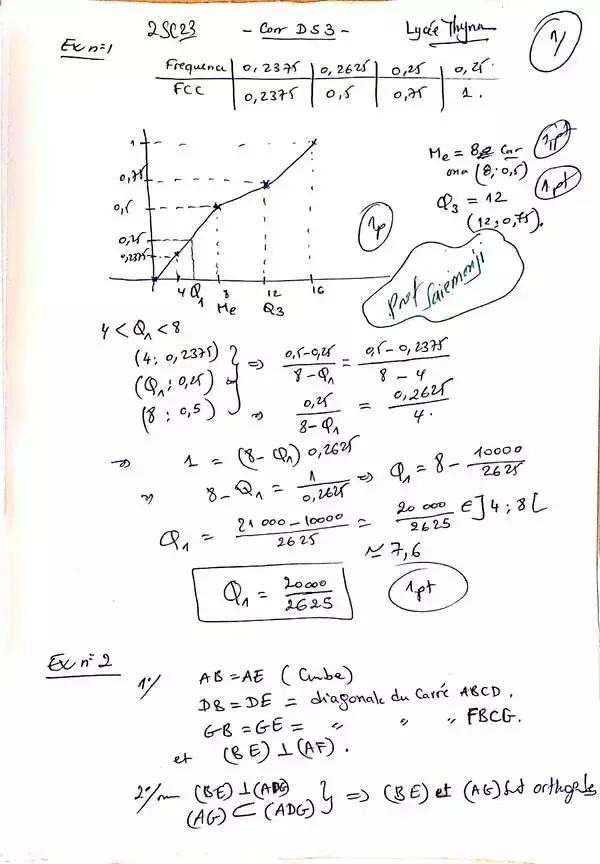 2SC23 - Corr DS3 - Lycée Thyna
1/
Ex n=1
Frequence 0,2375 0,2625 0,25 0,25
FCC 0,2375 0,5 0,75 1.
1
0,75
0,5
0,25
0,2375
4 Q1 8 12 16
Me Q3
Me = 8 car
ona (8; 0,5)
1pt
Q3 = 12
(12; 0,75).
1pt
1p
Prof Saiemenji
4 < Q1 < 8
(4; 0,2375)
(Q1; 0,25)
(8; 0,5)
} => (0,5-0,25)/(8-Q1) = (0,5-0,2375)/(8-4)
=> 0,25/(8-Q1) = 0,2625/4.
=> 1 = (8-Q1) 0,2625
=> 8-Q1 = 1/0,2625 => Q1 = 8 - 10000/2625
Q1 = (21000-10000)/2625 = 20000/2625 ∈ ]4; 8[
≃ 7,6
Q1 = 20000/2625
1pt
Ex n=2
1°/ AB = AE (Cube)
DB = DE = diagonale du Carré ABCD.
GB = GE = " " " FBCG.
et (BE) ⊥ (AF).
2°/ (BE) ⊥ (ADG)
(AG) ⊂ (ADG) } => (BE) et (AG) sont orthogonales